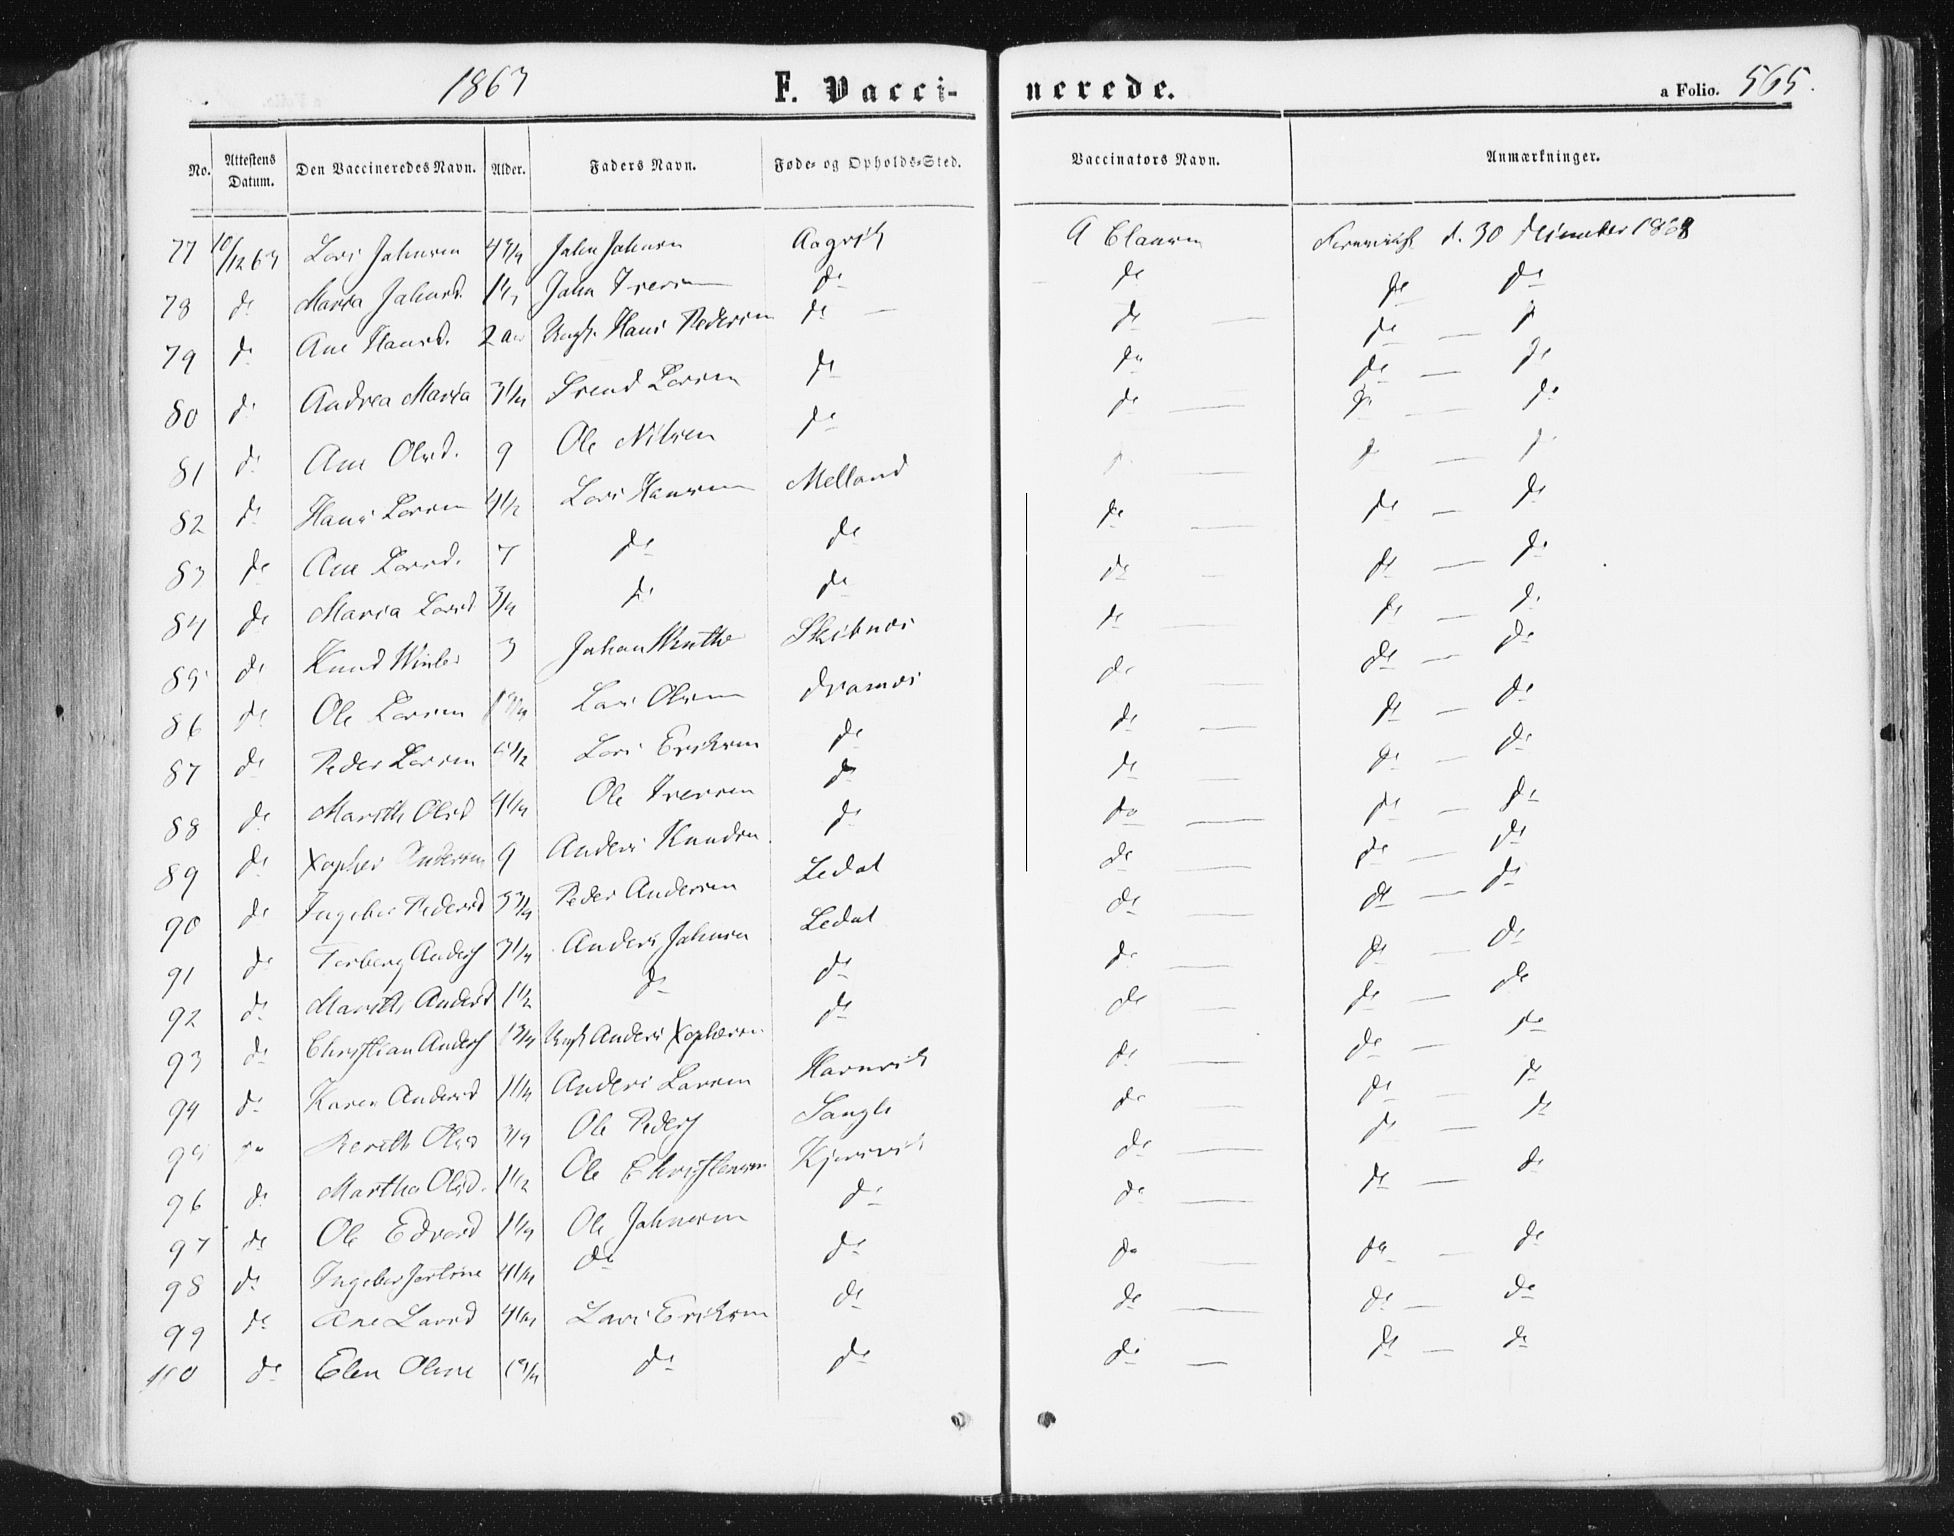 1863 F. Vaccinerede. a Folio. 565.
No. Attestens Datum. Den Vaccineredes Navn. Alder. Faders Navn. Føde- og Opholds-Sted. Vaccinators Navn. Anmærkninger.
77 10/12 63 Lars Johnsen 4 3/4 John Johnsen Aagvik A Clausen d. 30 December 1868
78 do Maria Johnsd. John Iversen do do do do
79 do Ane Hansd. 2 aar Ungk. Hans Pedersen do — do — do — do
80 do Andrea Maria 3 1/4 Svend Larsen do do do — do
81 do Ane Olsd. 9 Ole Nilsen do do — do — do
82 do Hans Larsen 4 1/2 Lars Hansen Melland do — do — do
83 do Ane Larsd. 7 do do do — do — do
84 do Maria Larsd 3/4 do do do — do — do
85 do Knud 3 Johan Skibnes do — do — do
86 do Ole Larsen 1 3/4 Lars Olsen do — do — do
87 do Peder Larsen Lars Eriksen do do — do — do
88 do Marith Olsd 4 1/4 Ole Iversen do do — do — do
89 do Xopher Andersen 9 Anders Knudsen do do — do — do
90 do Ingebor Pedersd 3 3/4 Peder Andersen Ledal do — do — do
91 do Torberg Anders 3 1/4 Anders Johnsen Ledal do — do — do
92 do Marith Andersd 1 1/2 do do do — do — do
93 do Christian Anders 1 3/4 Ungk Anders Xophersen do do — do — do
94 do Karen Andersd 1 1/4 Anders Larsen Hamvik do — do — do
95 do Berith Olsd 3/4 Ole Peders do — do — do
96 do Martha Olsd. 1 1/2 Ole Christensen Kjørsvik do — do — do
97 do Ole Edvard 1 1/4 Ole Johnsen do do — do — do
98 do Ingebor 4 1/4 do do do — do — do
99 do Ane Larsd 4 1/4 Lars Eriksen do do — do — do
100 do Elen Oline 1 3/4 do do do — do — do